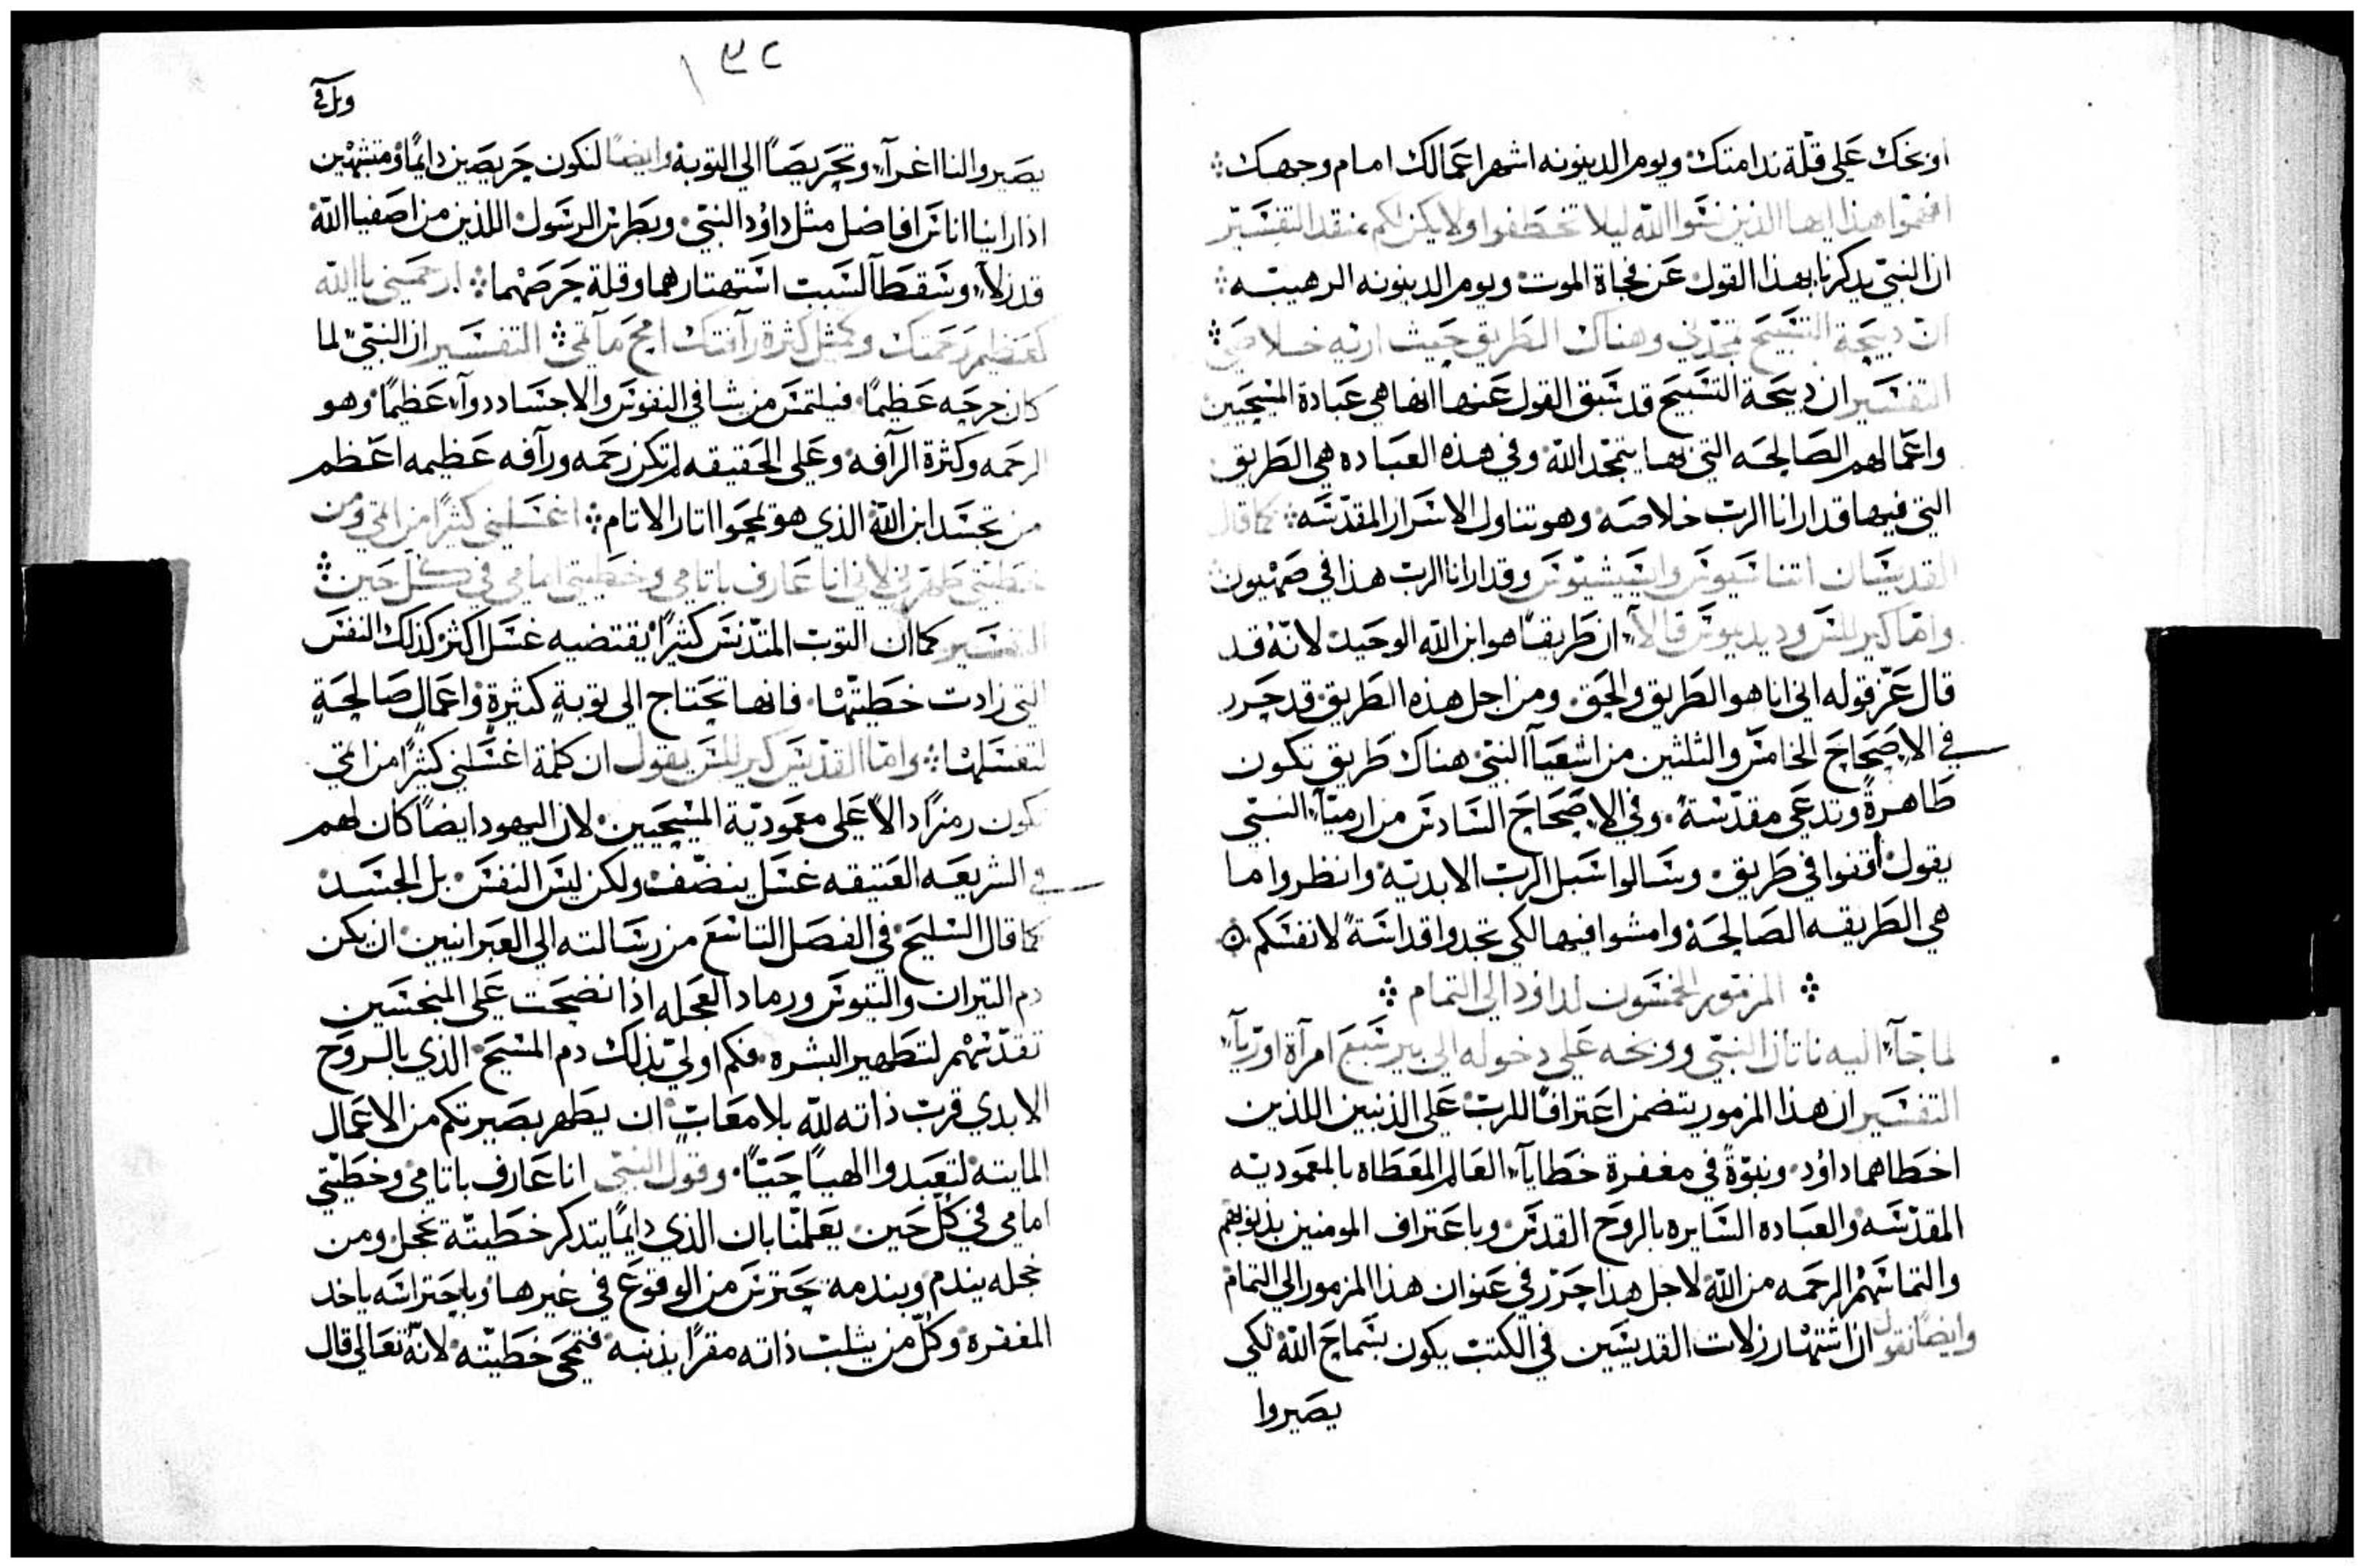 اوبخك على قلة ندامتك ويوم الدينونه اشهر اعمالك امام وجهك
افهموا هذا ايها الذين نسوا الله ليلا تخطفوا ولا يكن لكم منقد التفسير
ان النبي يدكرنا بهذا القول عن فجاة الموت ويوم الدينونه الرهيبه
ان دبيحة التسبيح تمجدني وهناك الطريق حيث اريه خلاصي
التفسير ان دبيحة التسبيح قد سبق القول عنها انها هي عبادة المسيحيين
واعمالهم الصالحه التي بها يتمجد الله وفي هذه العباده هي الطريق
التي فيها قد ارانا الرب خلاصه وهو تناول الاسرار المقدسه كما قال
القديسان اتناسيوس وايسيشيوس وقد ارانا الرب هذا في صهيون
واما كيرللس وديديموس قالا ان طريقنا هو ابن الله الوحيد لانه قد
قال عز قوله اني انا هو الطريق والحق ومن اجل هذه الطريق قد حرر
في الاصحاح الخامس والتلتين من اشعيا النبي هناك طريق تكون
طاهرة وتدعى مقدسة وفي الاصحاح السادس من ارميا النبي
يقول اقفوا في طريق وسالوا سبل الرب الابدية وانظروا ما
هي الطريقه الصالحة وامشوا فيها لكي تجدوا قداسة لانفسكم
المزمور الخمسون لداود الى التمام
لما جآ اليه ناتان النبي ووبخه على دخوله الى بيرشبع امرآة اوريا
التفسير ان هذا المزمور يتضمن اعترافا للرب على الذنبين اللذين
اخطاهما داود ونبوة في مغفرة خطايا العالم المعطاه بالمعموديه
المقدسه والعباده السايره بالروح القدس وباعتراف المومنين بذنوبهم
والتماسهم الرحمه من الله لاجل هدا حرر في عنوان هذا المزمور الى التمام
وايضا نقول ان اشتهار زلات القديسين في الكتب يكون بسماح الله لكي
يصيروا
١٣٢
يصيروا لنا اغرآ وتحريصا الى التوبة وايضا لنكون حريصين دايما ومتنبهين
اذا راينا اناس افاضل مثل داود النبي وبطرس الرسول اللذين من اصفيا الله
قد زلا وسقطا لسبب استهتارهما وقلة حرصهما ارحمني يا الله
كعظيم رحمتك وكمثل كثرة رآفتك امح مآتمي التفسير ان النبي لما
كان جرحه عظيما فيلتمس من شافي النفوس والاجساد دوآ عظيما وهو
الرحمه وكثرة الرآفه وعلى الحقيقه لم تكن رحمه ورآفه عظيمه اعظم
من تجسد ابن الله الذي هو لمحو اتار الاتام اغسلني كثيرا من اتمي ومن
خطيتي طهرني لاني انا عارف باتامي وخطيتي امامي في كل حين
التفسير كما ان التوب المتدنس كثيرا يقتضيه غسل اكثر كذلك النفس
التي زادت خطيتها فانها تحتاج الى توبة كثيرة واعمال صالحة
لتغسلها واما القديس كيرللس يقول ان كلمة اغسلني كثيرا من اتمي
تكون رمزا دالا على معمودية المسيحيين لان اليهود ايضا كان لهم
في الشريعه العتيقه غسل ينضف ولكن ليس النفس بل الجسد
كما قال السليح في الفصل التاسع من رسالته الى العبرانيين ان يكن
دم التيران والتيوس ورماد العجله اذا نضحت على المنجسين
تقدسهم لتطهير البشره فكم اولى بذلك دم المسيح الذي بالروح
الابدي قرب ذاته لله بلا معاب ان يطهر بصيرتكم من الاعمال
المايته لتعبدوا الهيا حيا وقول النبي انا عارف باتامي وخطيتي
امامي في كل حين يعلمنا بان الذي دايما يتدكر خطيته يخجل ومن
خجله يندم وبندمه يحترس من الوقوع في غيرها وباحتراسه ياخد
المغفرة وكل من يثلب ذاته مقرا بذنبه فتمحى خطيته لانه تعالى قال